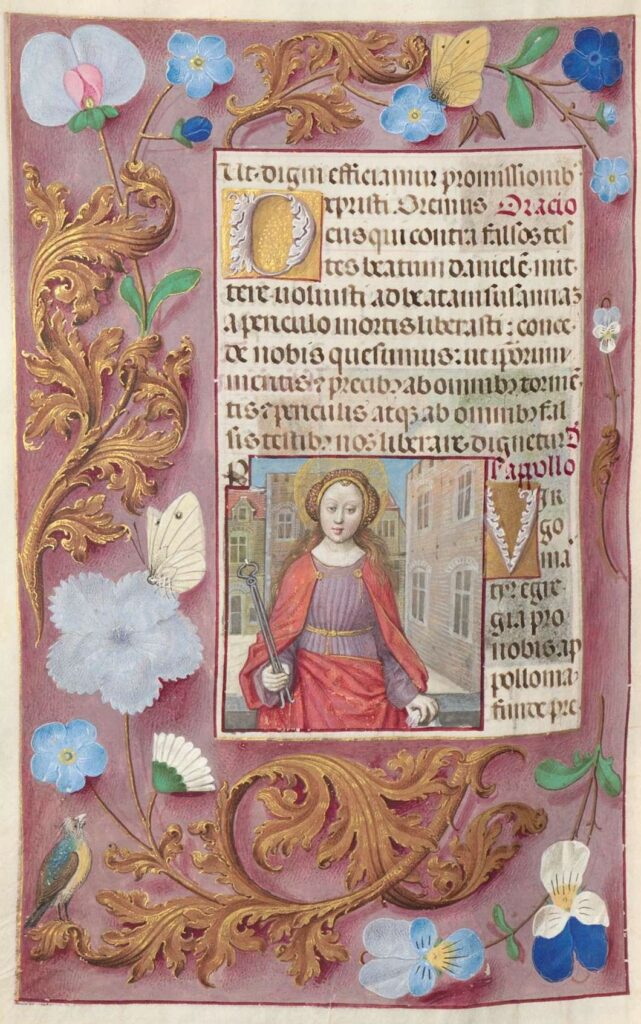 Ut digni efficiamur promissionib
xpristi. Oremus Oracio
Deus qui contra falsos tes
tes beatum danielē mit
tere voluisti ad beatam susannaʒ
a periculo mortis liberasti: conce
de nobis quesumus: ut ip̄orum
meritis ⁊ precibꝫ ab omnibꝫ tormē
tis ⁊ periculis atqꝫ ab omnibꝫ fal
sis testibꝫ nos liberare dignetur
appollo
Vir
go
ma
tyr egre
gia pro
nobis ap
pollonia
funde pre